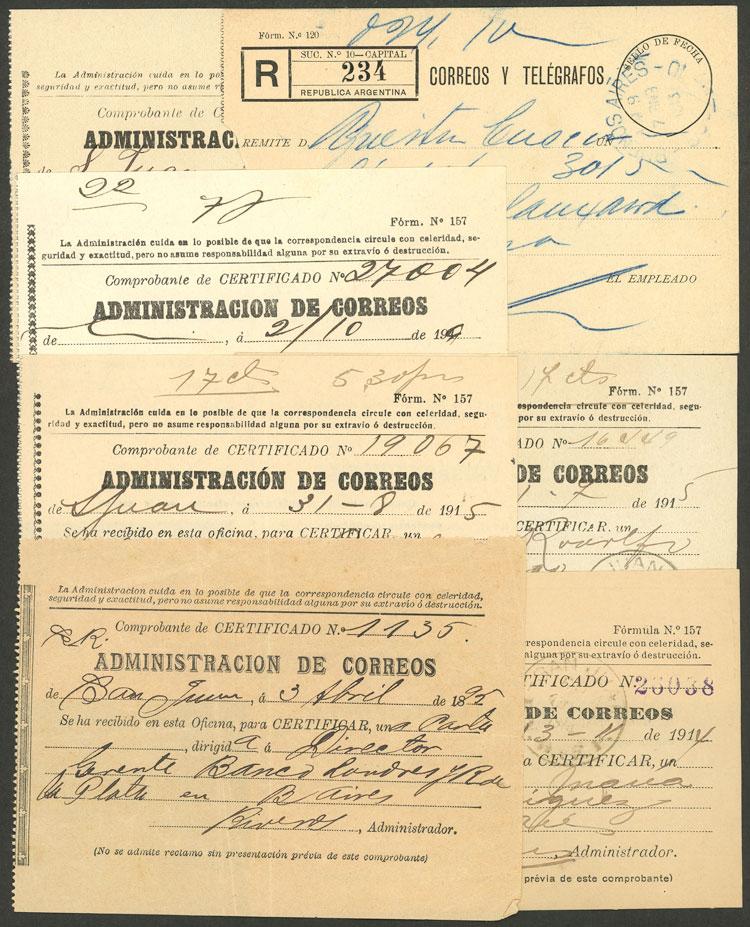 Fórm. N.º 120
R
SUC. N.º 10—CAPITAL
234
REPUBLICA ARGENTINA
CORREOS Y TELÉGRAFOS
SELLO DE FECHA
REMITE D
UN
3015
EL EMPLEADO
La Administración cuida en lo po
seguridad y exactitud, pero no asume
Comprobante de C
ADMINISTRAC
22
77
Fórm. Nº 157
La Administración cuida en lo posible de que la correspondencia circule con celeridad, se-
guridad y exactitud, pero no asume responsabilidad alguna por su extravío ó destrucción.
Comprobante de CERTIFICADO Nº 27004
ADMINISTRACION DE CORREOS
de , á 2/10 de 191
17 cts
Fórm. Nº 157
La Administración cuida en lo posible de que la correspondencia circule con celeridad, segu-
ridad y exactitud, pero no asume responsabilidad alguna por su extravío ó destrucción.
Comprobante de CERTIFICADO Nº 19067
ADMINISTRACIÓN DE CORREOS
de SJuan, á 31-8 de 1915
Se ha recibido en esta oficina, para CERTIFICAR, un
17 cts
Fórm. Nº 157
espondencia circule con celeridad, segu-
por su extravío ó destrucción.
ADO Nº 16449
DE CORREOS
-7 de 1915
CERTIFICAR, un
Rodolfo
La Administracion cuida en lo posible de que la correspondencia circule con celeridad,
seguridad y exactitud, pero no asume responsabilidad alguna por su extravío ó destrucción.
Comprobante de CERTIFICADO N.º 1135.
ADMINISTRACION DE CORREOS
de San Juan, á 3 Abril de 1895
Se ha recibido en esta Oficina, para CERTIFICAR, una Carta
, dirigida á Director
Gerente Banco Londres y R de
la Plata en B Aires
Riveros, Administrador.
(No se admite reclamo sin presentación prévia de este comprobante)
Fórmula N.º 157
rrespondencia circule con celeridad, se-
alguna por su extravío ó destrucción.
TIFICADO N. 26038
DE CORREOS
13-11 de 1914
a CERTIFICAR, un
, Administrador.
prévia de este comprobante)